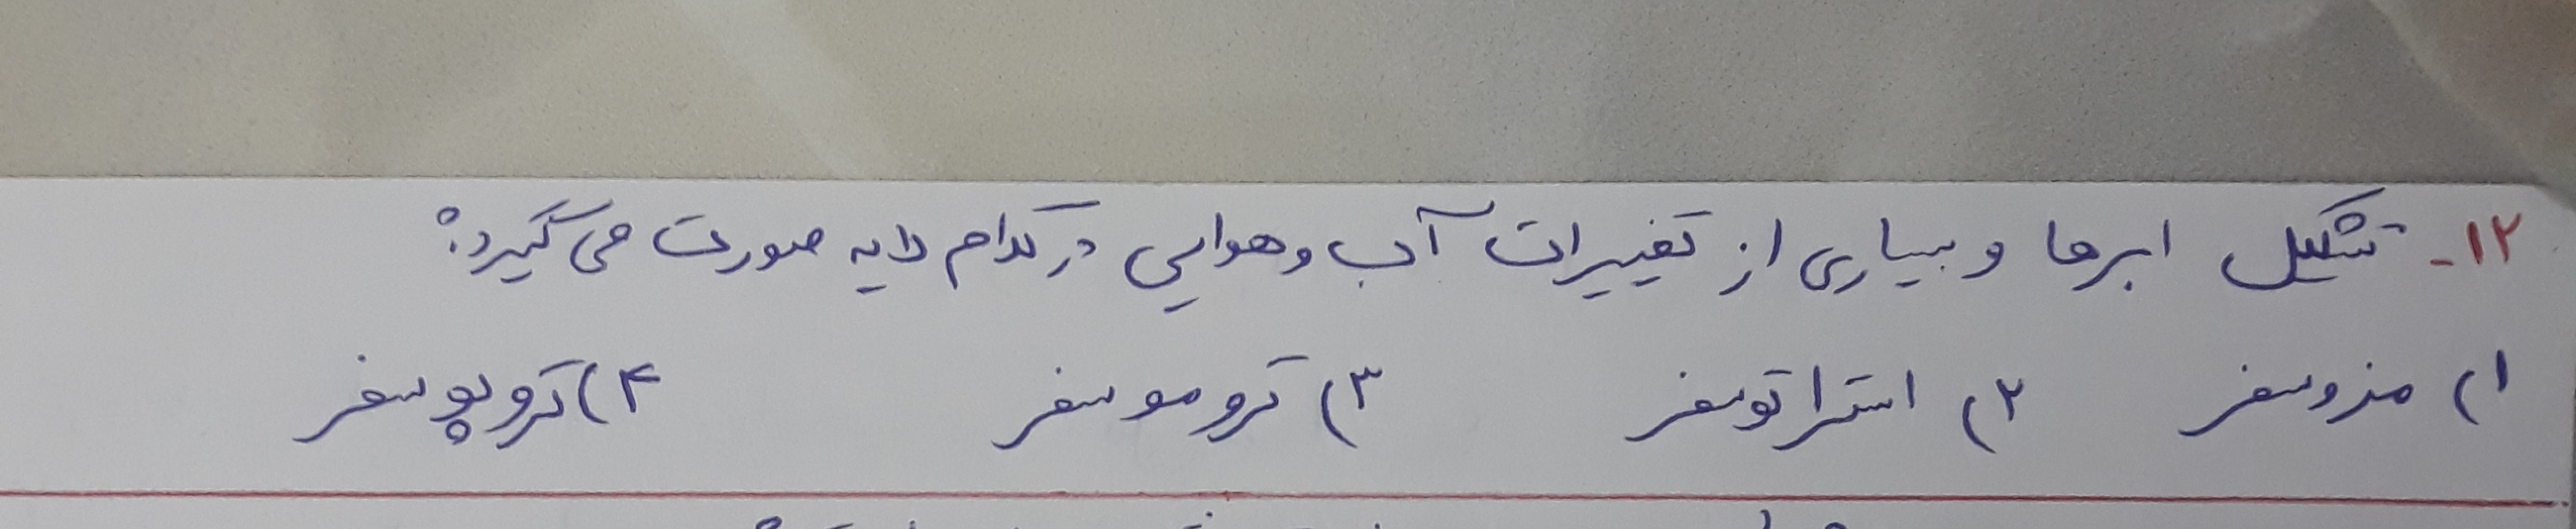 ۱۲- تشکیل ابرها و بسیاری از تغییرات آب و هوایی در کدام لایه صورت می گیرد؟
۱) مزوسفر ۲) استراتوسفر ۳) ترموسفر ۴) تروپوسفر